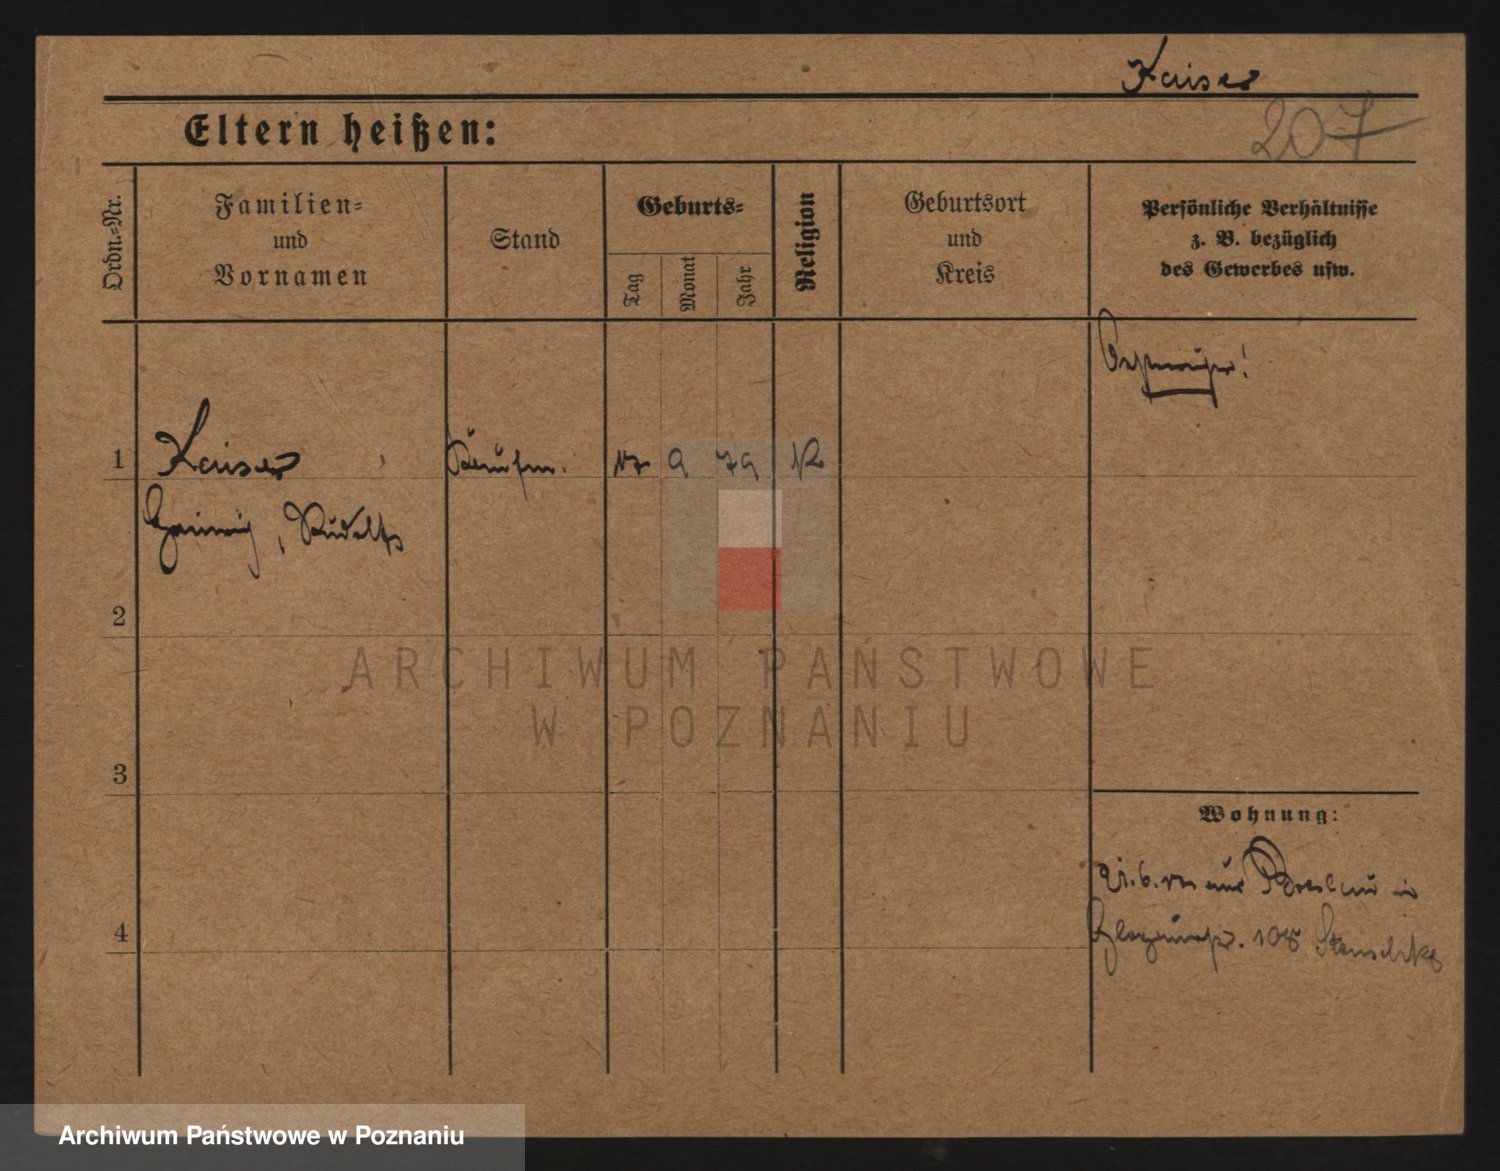 Kaiser
Eltern heißen:
207
Ordn.-Nr.
Familien-
und
Vornamen
Stand
Geburts-
Tag
Monat
Jahr
Religion
Geburtsort
und
Kreis
Persönliche Verhältnisse
z. B. bezüglich
des Gewerbes usw.
1
Kaiser
Kaufm.
17
9
79
K
Heinrich, Rudolf
2
ARCHIWUM PAŃSTWOWE
W POZNANIU
3
Wohnung:
21. 6. aus Breslau in
108
4
Archiwum Państwowe w Poznaniu